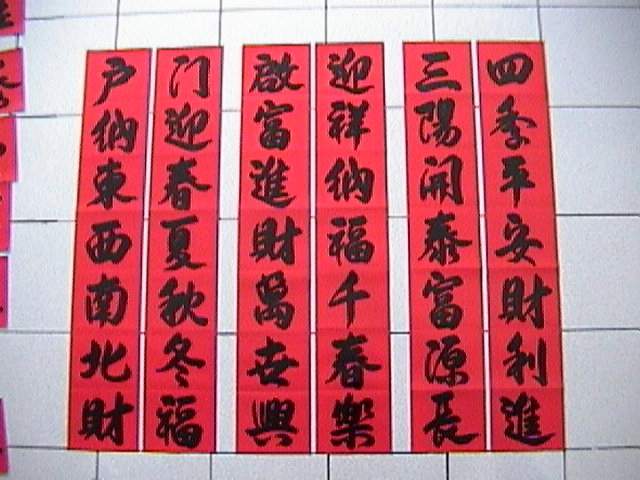 四季平安財利進
三陽開泰富源長
迎祥納福千春樂
啟富進財萬世興
门迎春夏秋冬福
户納東西南北財